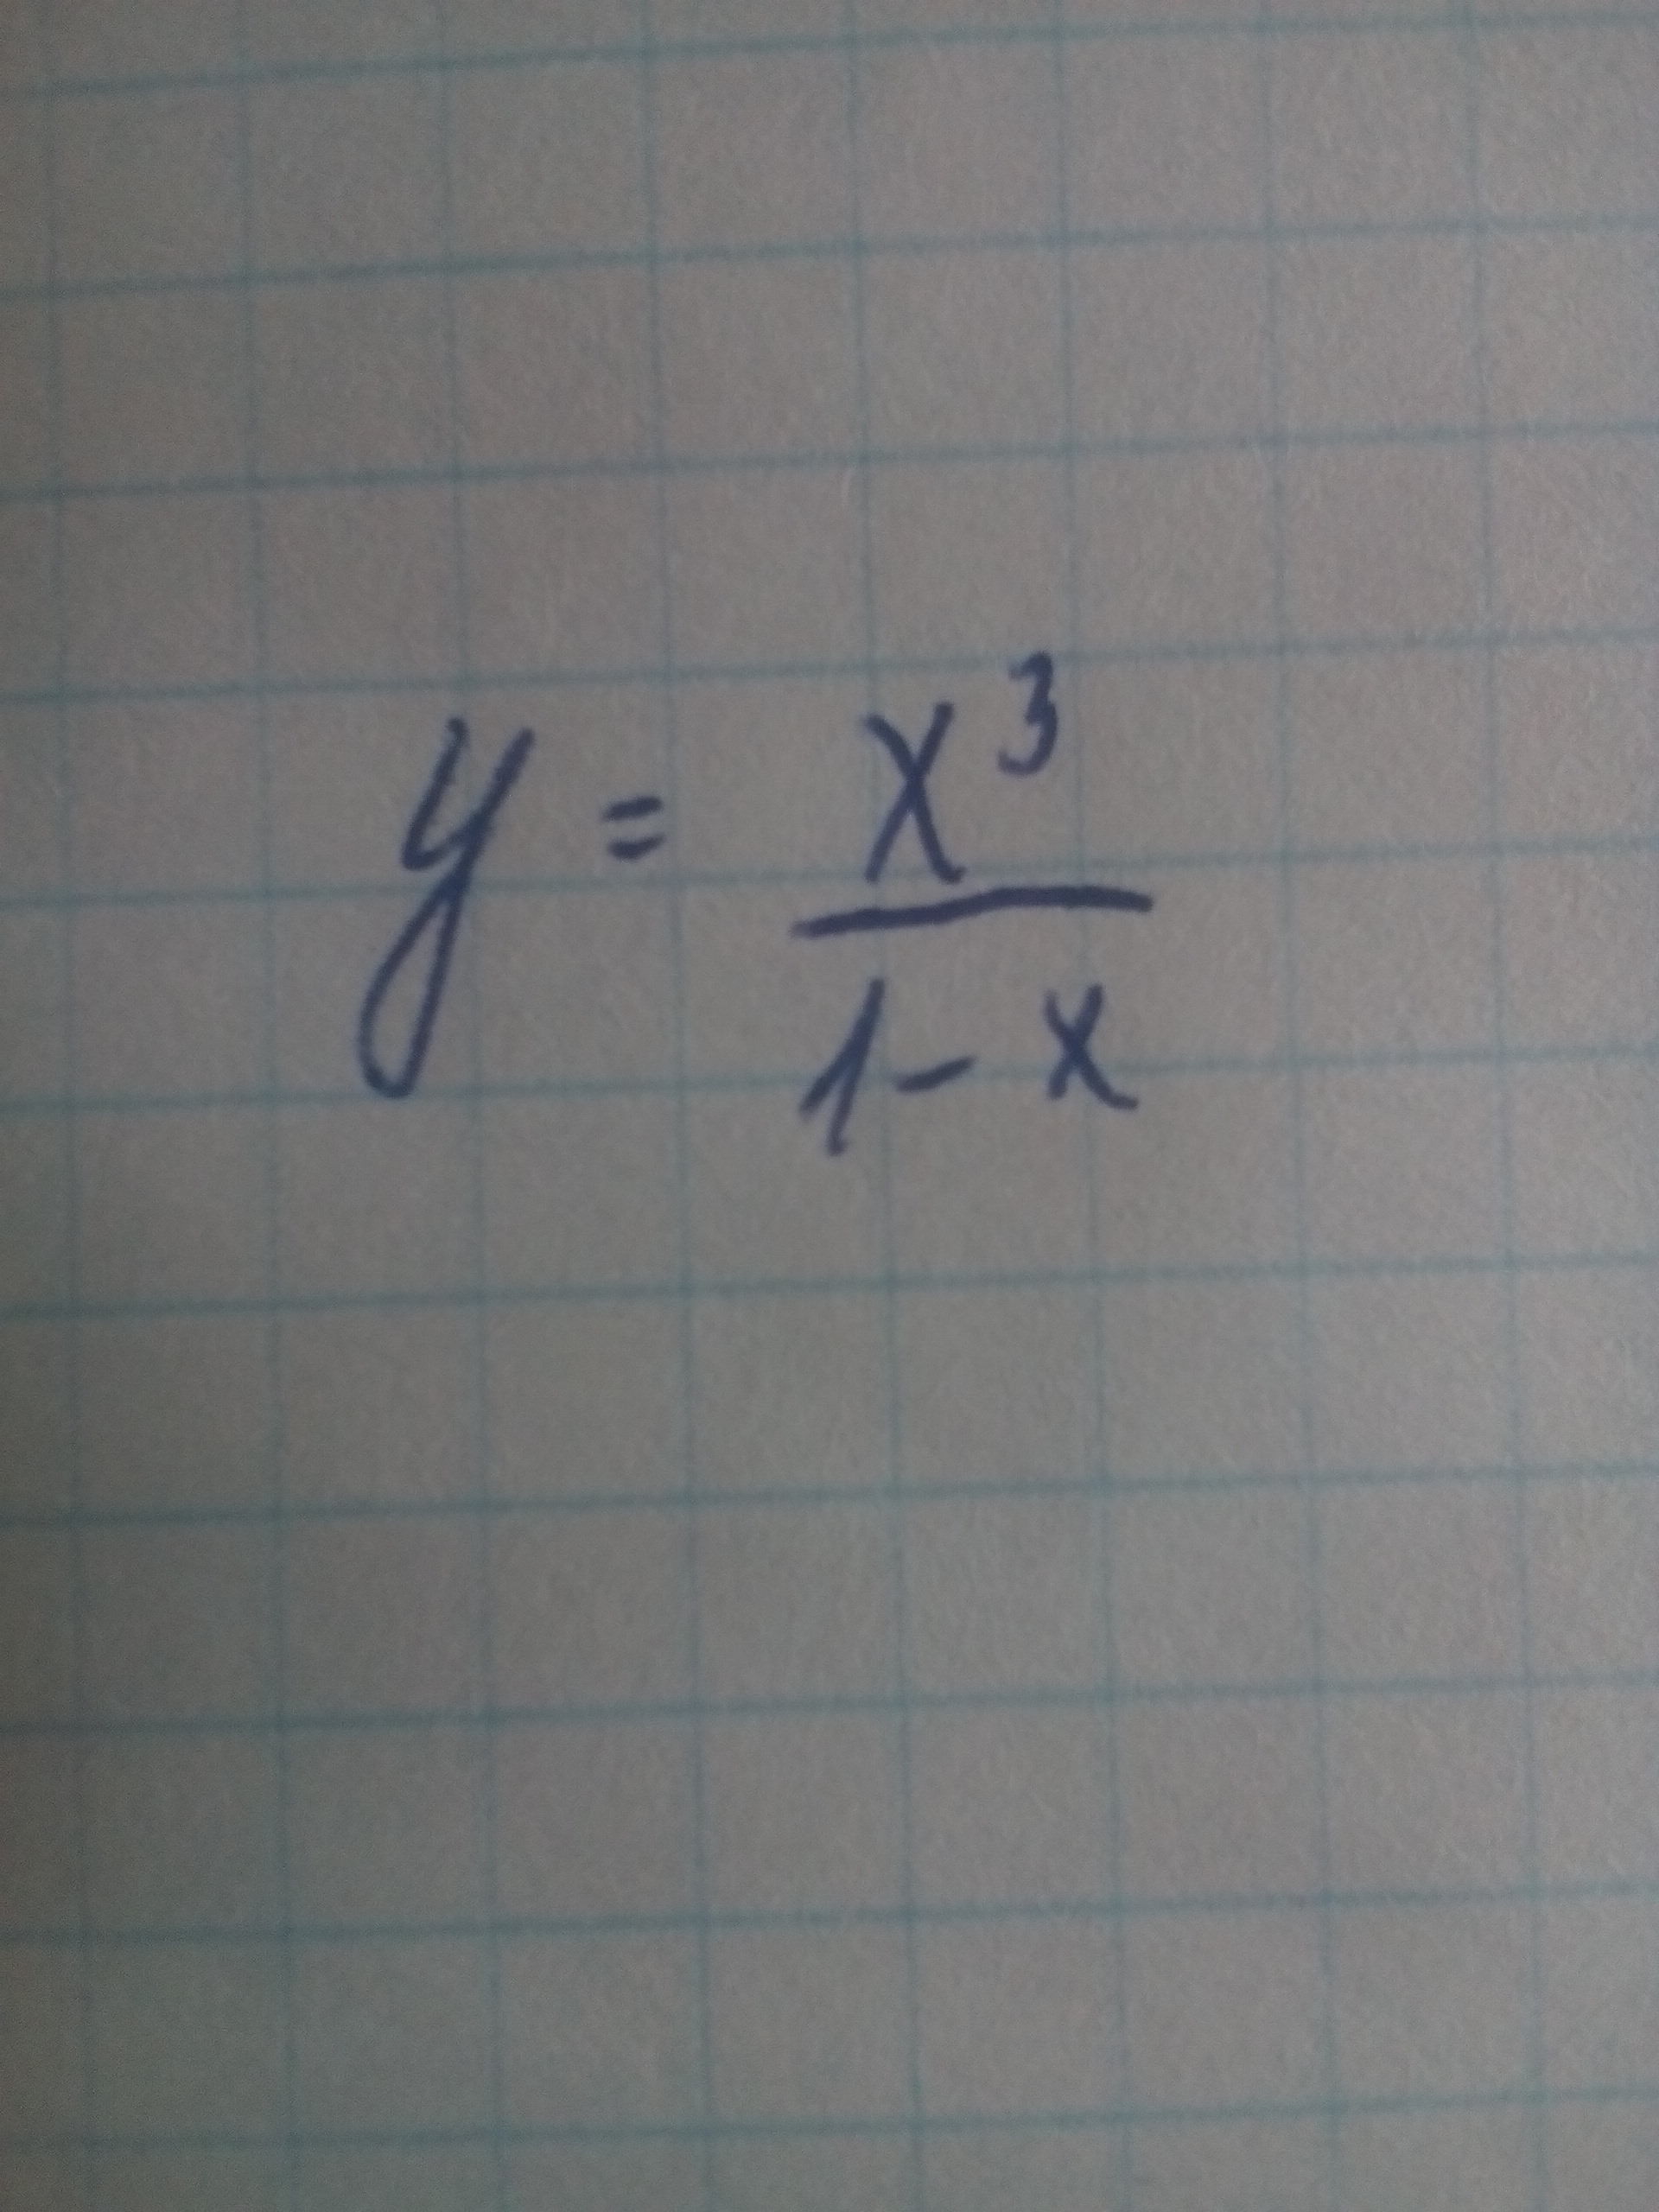 y = x³/(1 - x)